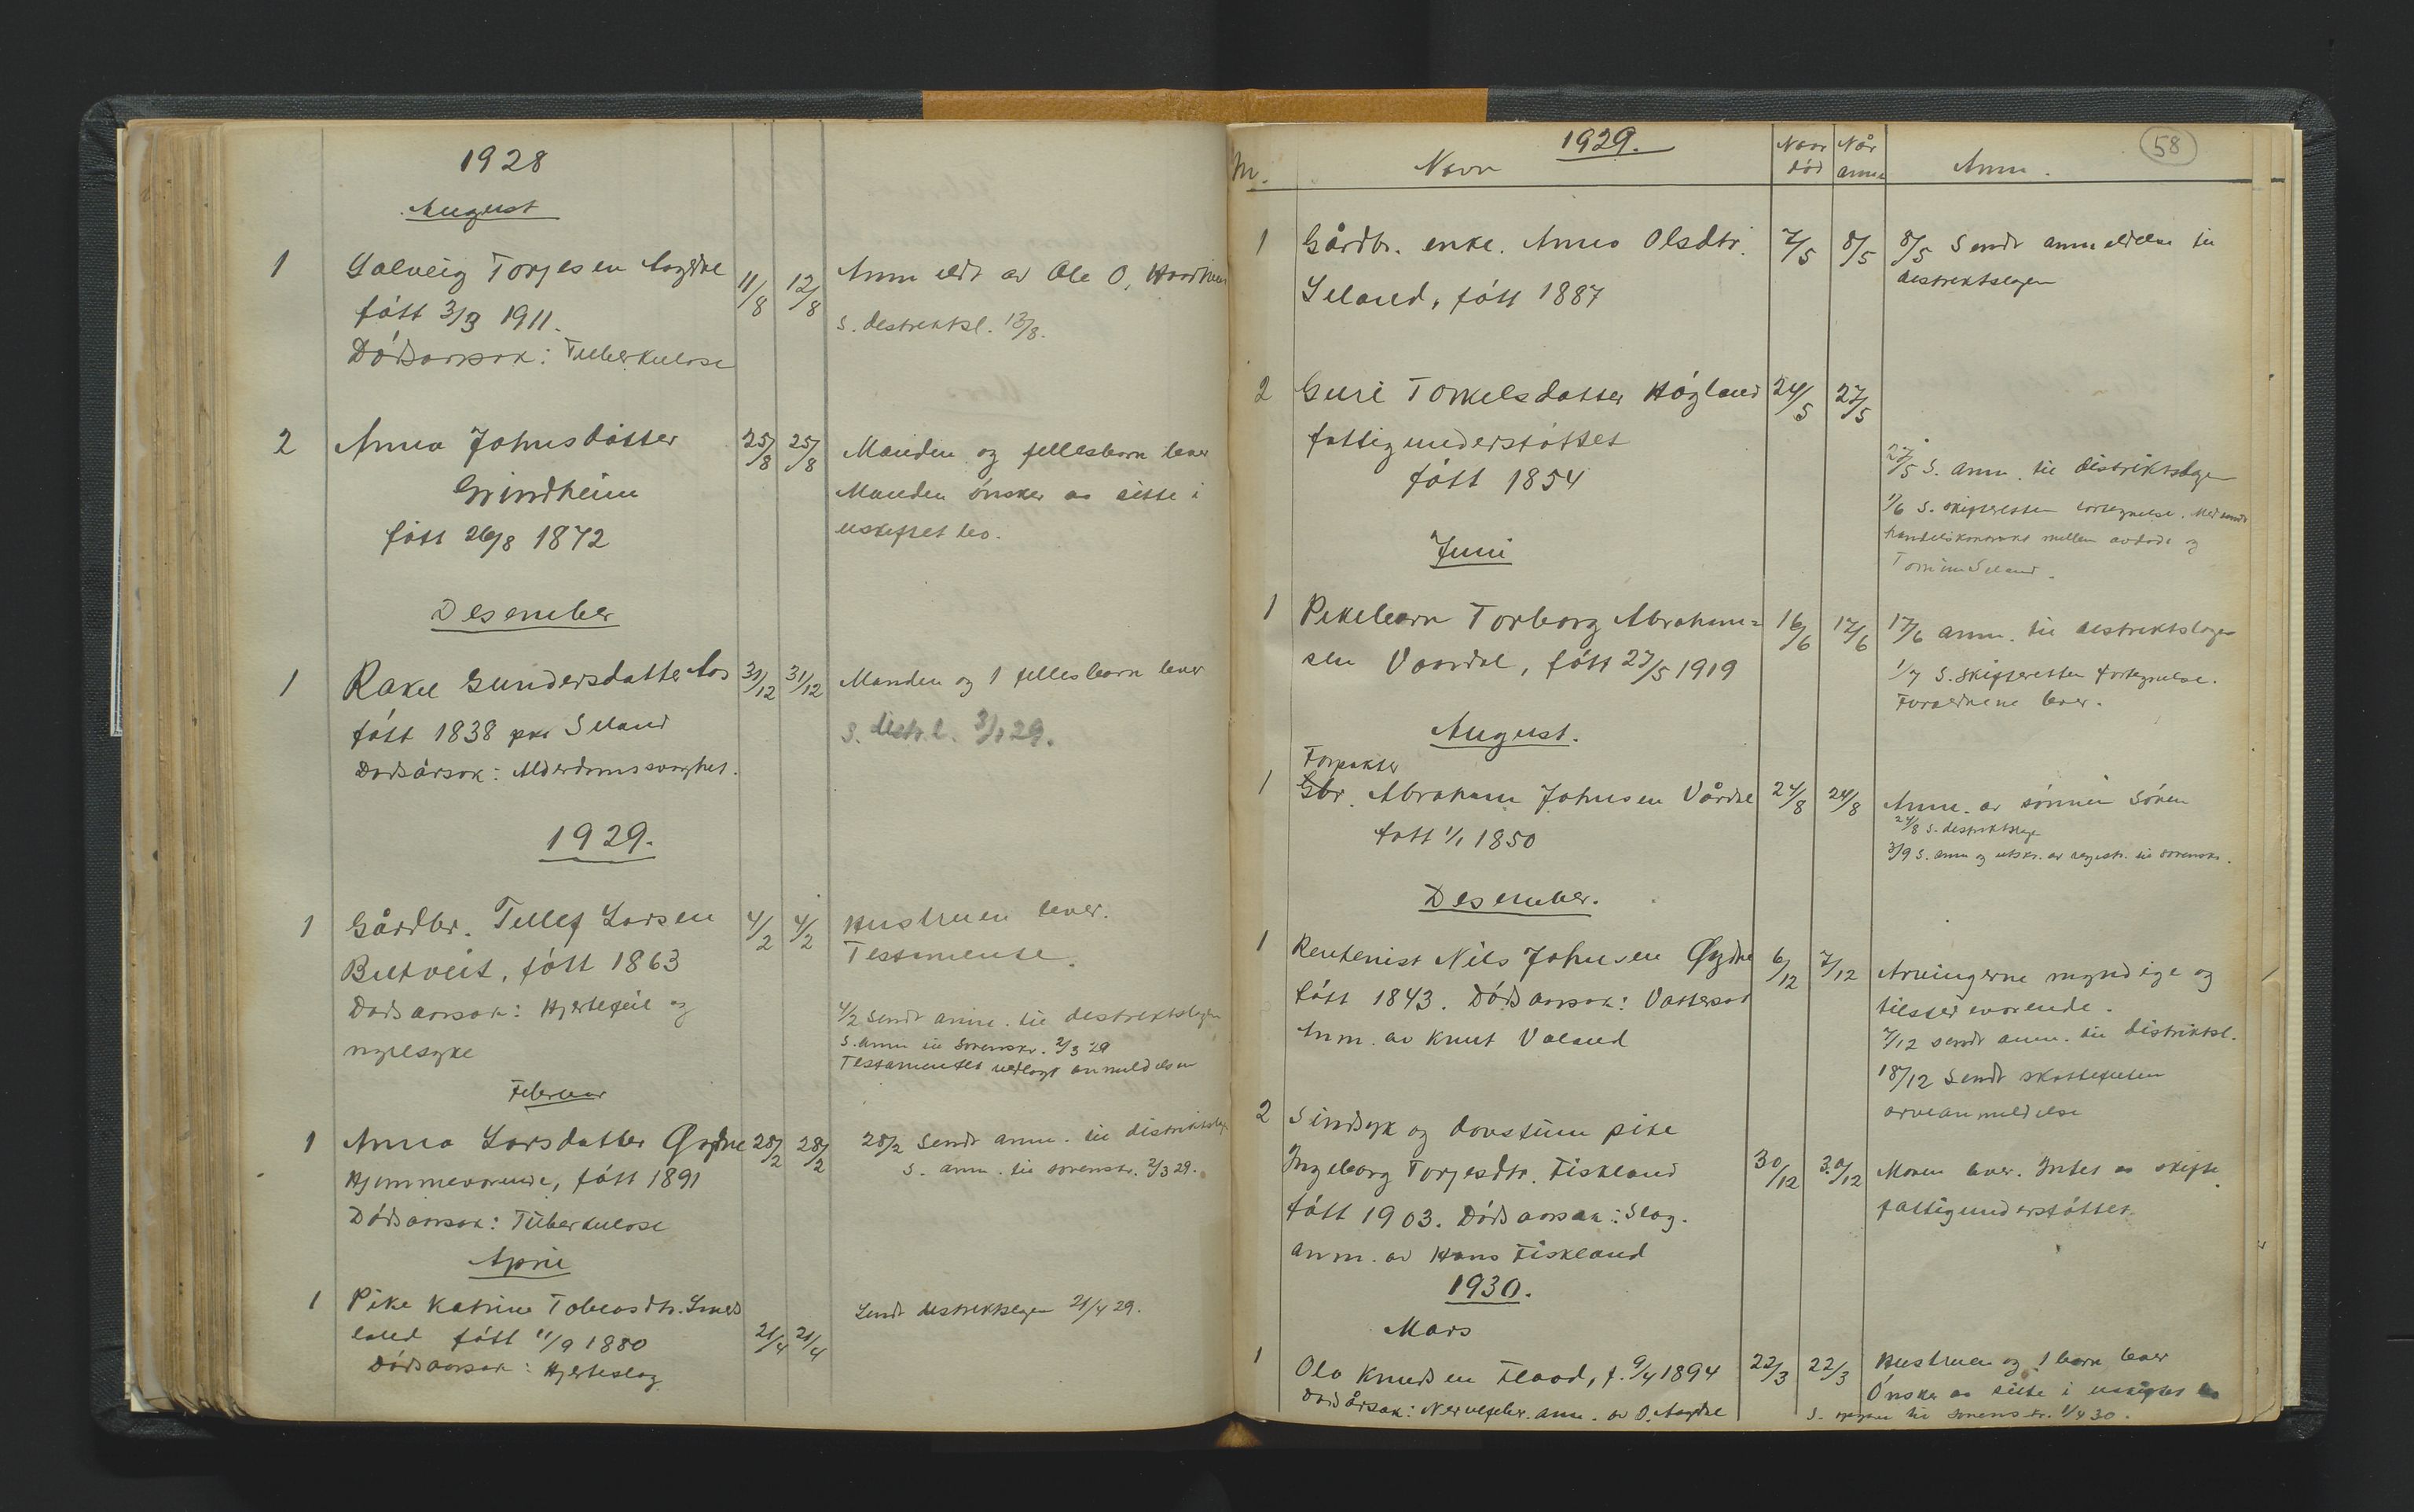 1928
August
1 Salveig Torjesen Aagdne 11/8 12/8 Anm eldt av Ole O.
fött 3/3 1911. S. destriktsl. 13/8.
Dödsaarsak: Tuberkulose
2 Anna Johnsdatter 25/8 25/8 Manden og fellesbarn lever
Grindheim Manden önsker aa sitte i
fött 26/8 1872 uskiftet bo.
Desember
1 Rakel Gundersdatter Aas 31/12 31/12 Manden og 1 fellesbarn lever
fött 1838 paa Seland S. distr.l. 3/1 29.
Dødsårsak: Alderdomssvaghet.
1929.
1 Gårdbr. Tellef Larsen 4/2 4/2 Hustruen lever.
Butveit, fött 1863 Testamente.
Dødsaarsak: Hjertefeil og 4/2 Sendt anm. til destriktslegen
nyresyke S. anm til Sorenskr. 2/3 29
Testamentet vedlagt anmeldelsen
Februar
1 Anna Larsdatter Øydne 28/2 28/2 28/2 Sendt anm. til distriktslege
Hjemmeværende, fött 1891 S. anm. til sorenskr. 2/3 29.
Dödsaarsak: Tüberkulose
April
1 Pike Katrine Tobiasdtr. Smed
land fött 11/9 1880 21/4 21/4 Sendt destriktslegen 21/4 29.
Dödsaarsak: Hjerteslag
58
1929.
Nr. Navn Naar död Når anm. Anm.
1 Gårdbr. enke. Anna Olsdtr. 7/5 8/5 8/5 Sendt anmeldelse til
Seland, fött 1887 destriktslegen
2 Guri Torkelsdatter Högland 24/5 27/5
fattigunderstöttet 27/5 S. anm. til distriktslegen
fött 1854 1/6 S. skifteretten fortegnelse. Medsendt
handelskontrakt mellem avdöde og
Seland.
Juni
1 Pikebarn Torborg Abraham= 16/6 17/6 17/6 anm. til destriktslegen
sen Vaardal, fött 27/5 1919 1/7 S. Skifteretten fortegnelse.
Foreldrene lever.
August.
Forpakter
1 Gbr. Abraham Johnsen Vårdal 24/8 24/8 Anm. av sönnen Sören
fött 1/1 1850 24/8 S. destriktslege
3/9 S. anm og utskr. av registr. til sorenskr.
Desember.
1 Rentenist Nils Johnsen Øydne 6/12 7/12 Arvingerne myndige og
fött 1843. Dödsaarsak: Vattersot tilstedeværende.
Anm. av Knut Valand 7/12 sendt anm. til distriktsl.
18/12 Sendt skattefuten
arveanmeldelse
2 Sindsyk og dovstum pike
Ingeborg Torjesdtr. Fiskland 30/12 30/12 Moren lever. Intet aa skifte.
fött 1903. Dödsaarsak: Slag. fattigunderstöttet.
anm. av Hans Fiskland
1930.
Mars
1 Ola Knudsen Flaad, f. 9/4 1894 22/3 22/3 Hustruen og 1 barn lever
Dødsårsak: Nervefeber. anm. av O. Aagdne Önsker aa sitte i uskiftet bo
S. til sorenskr. 1/4 30.